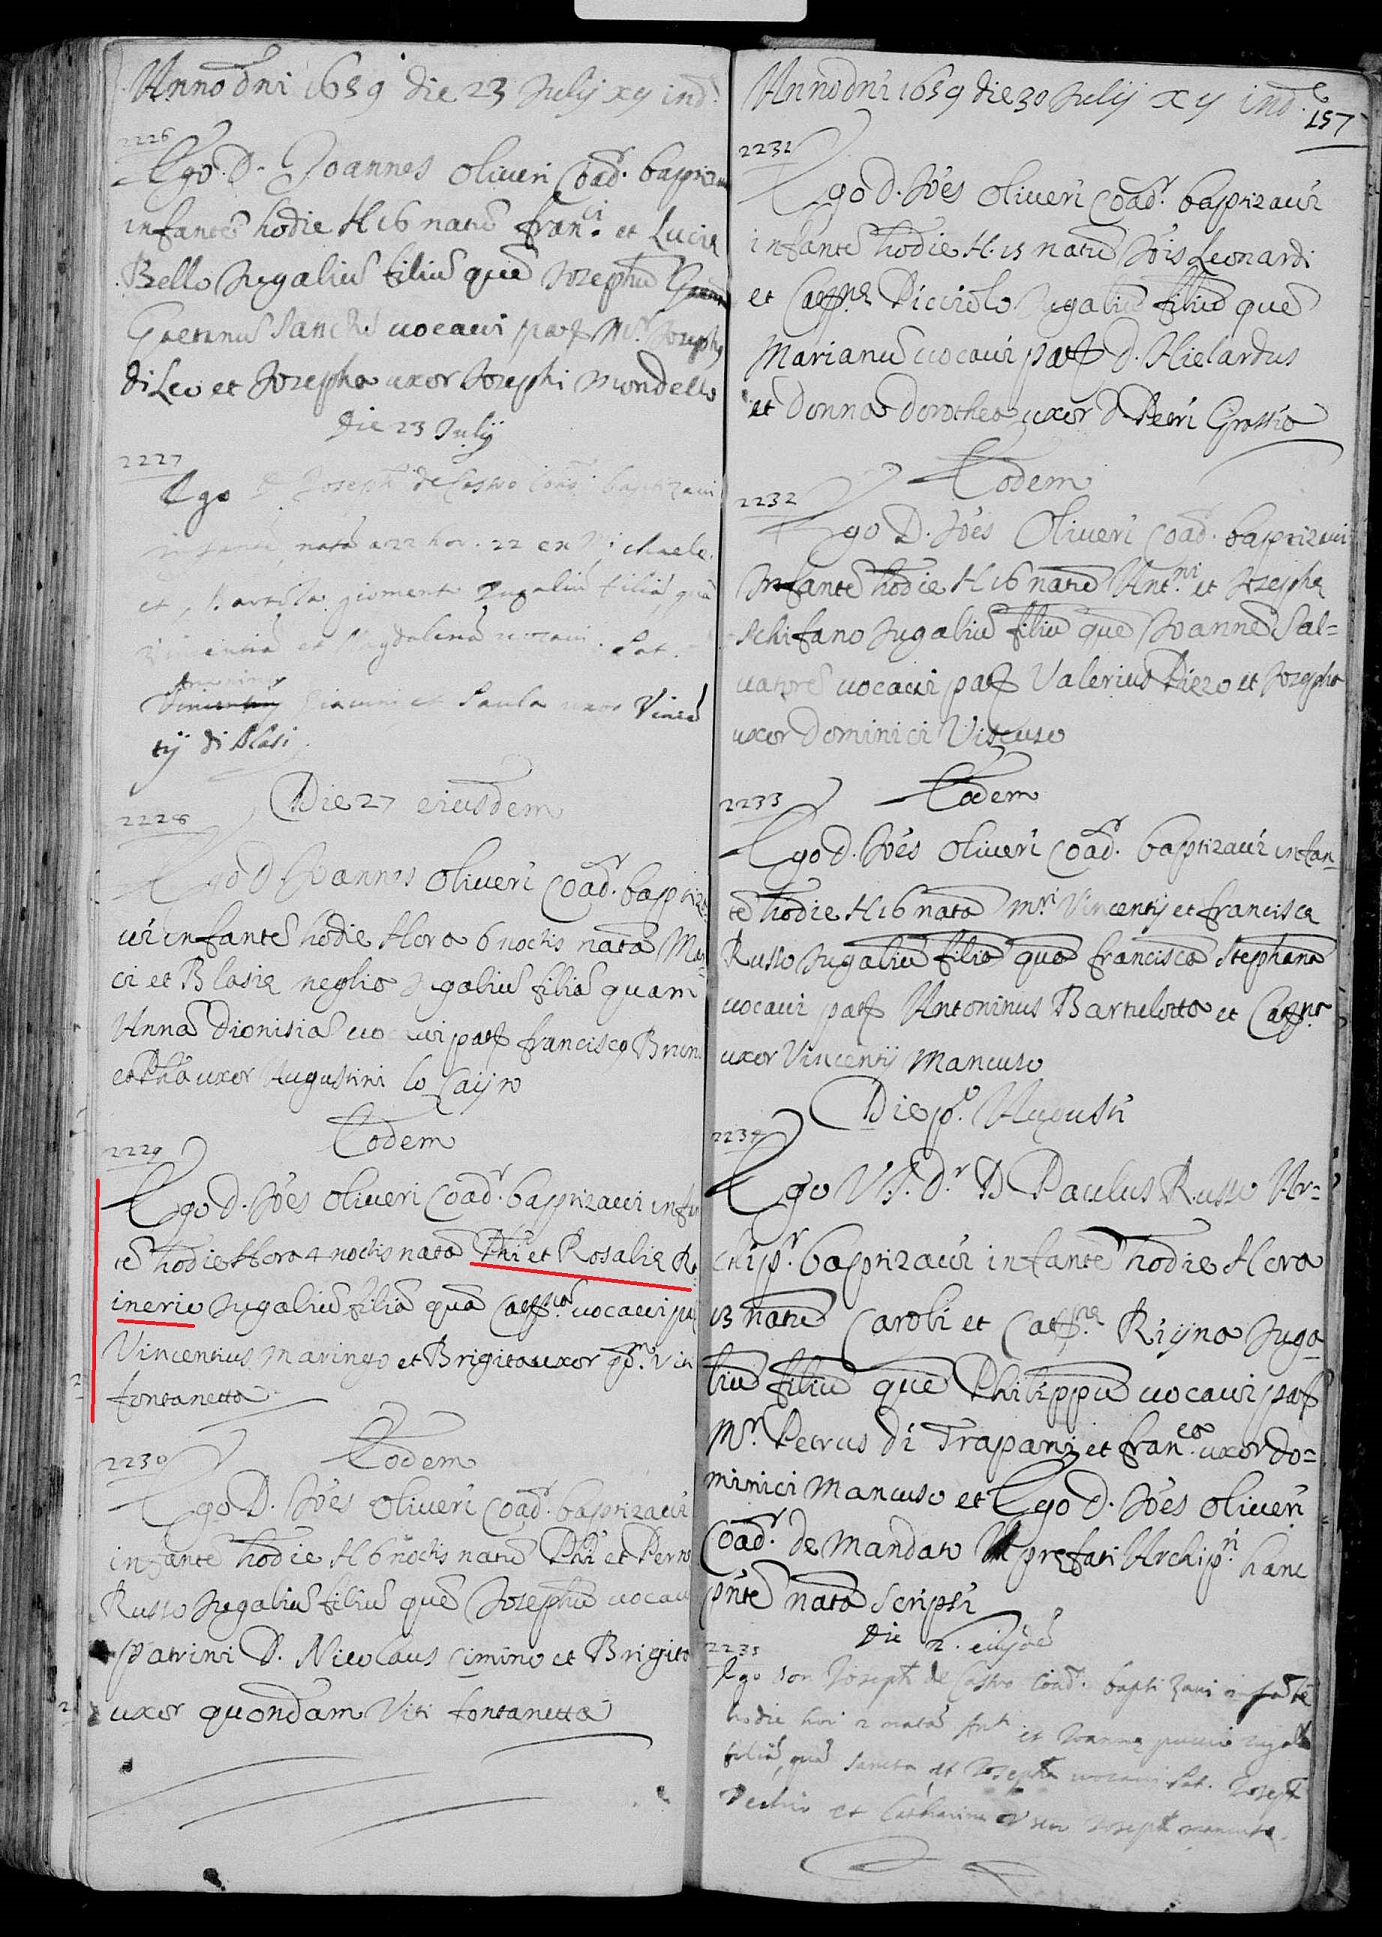 Anno dni 1659 die 23 Julij xij ind.
2226
Ego D. Joannes Oliveri Coadr. baptizavi
infantē hodie H 16 natū Franci. et Luciæ
Bello Jugaliū filiū quē Jozephū
Gaetanū vocavi patr Mr. Joseph
di Leo et Jozepha uxor Jozephi Mondello
Die 23 Julij
2227
Ego D. Joseph de Castro Coad. baptizavi
infantē natā hor. 22 ex Michaele
et giomento Jugaliū filiā quā
Vincentiā et Magdalenā vocavi. Pat.
Antoninus
et Paula uxor Vincē
tij di Blasi
Die 27 eiusdem
2228
Ego D. Joannes Oliveri Coadr. baptiza
vi infantē hodie Hora 6 noctis natā Mar
ci et Blasiæ neglia Jugaliū filiā quam
Annā Dionisiā vocavi patr franciscus Brun
et uxor Augustini lo Caijro
Eodem
2229
Ego D. Joēs Oliveri Coadr. baptizavi infan
tē hodie Hora 4 noctis natā Phi et Rosaliæ Ra
ineri Jugaliū filiā quā Cattna. vocavi pa
Vincentius Maringo et Brigita uxor qm. Viti
fontanetta
Eodem
2230
Ego D. Joēs Oliveri Coadr. baptizavi
infantē hodie H 6 noctis natū Phi et Perna
Russo Jugaliū filiū quē Jozephū vocavi
patrini D. Nicolaus Cimino et Brigita
uxor quondam Viti fontanetta
Anno dni 1659 die 30 Julij xij ind.
157
2231
Ego D. Joēs Oliveri Coadr. baptizavi
infantē hodie H. 15 natū Jois Leonardi
et Cattnæ Picciolo Jugaliū filiū quē
Marianū vocavi patr D. Hielardus
et Donna Dorothea uxor D. Petri Grosso
Eodem
2232
Ego D. Joēs Oliveri Coad. baptizavi
Infantē hodie H 16 natū Antni. et Jozephæ
Schifano Jugaliū filiū quē Joannē Sal=
vatorē vocavi patr Valerius Piezo et Jozepha
uxor Dominici Viscuso
Eodem
2233
Ego D. Joēs Oliveri Coadr. baptizavi infan
tē hodie H 16 natā Mri. Vincentij et franciscæ
Russo Jugaliū filiā quā franciscā Stephanā
vocavi patr Antoninus Bartulotta et Cattna
uxor Vincentij Mancuso
Die po. Augusti
2234
Ego V. J. Dr. D. Paulus Russo Ar=
chipr. baptizavi infantē hodie Hora
13 natū Caroli et Cattnæ Rijna Juga
liū filiū quē Philippū vocavi patr
Mr. Petrus di Trapani et franca. uxor Do=
minici Mancuso et Ego D. Joēs Oliveri
Coadr. de mandato prefati Archipri. hanc
pntē notā Scripsi
Die 2. eiusdē
2235
Ego Don Joseph de Castro Coad. baptizavi infantē
hodie hor. 2 natā Anti et Joannæ puccio Jugal
filiā, quā Sancta et Josepha vocavi Pat. Joseph
Vechio et Catharina uxor Joseph mancuso.